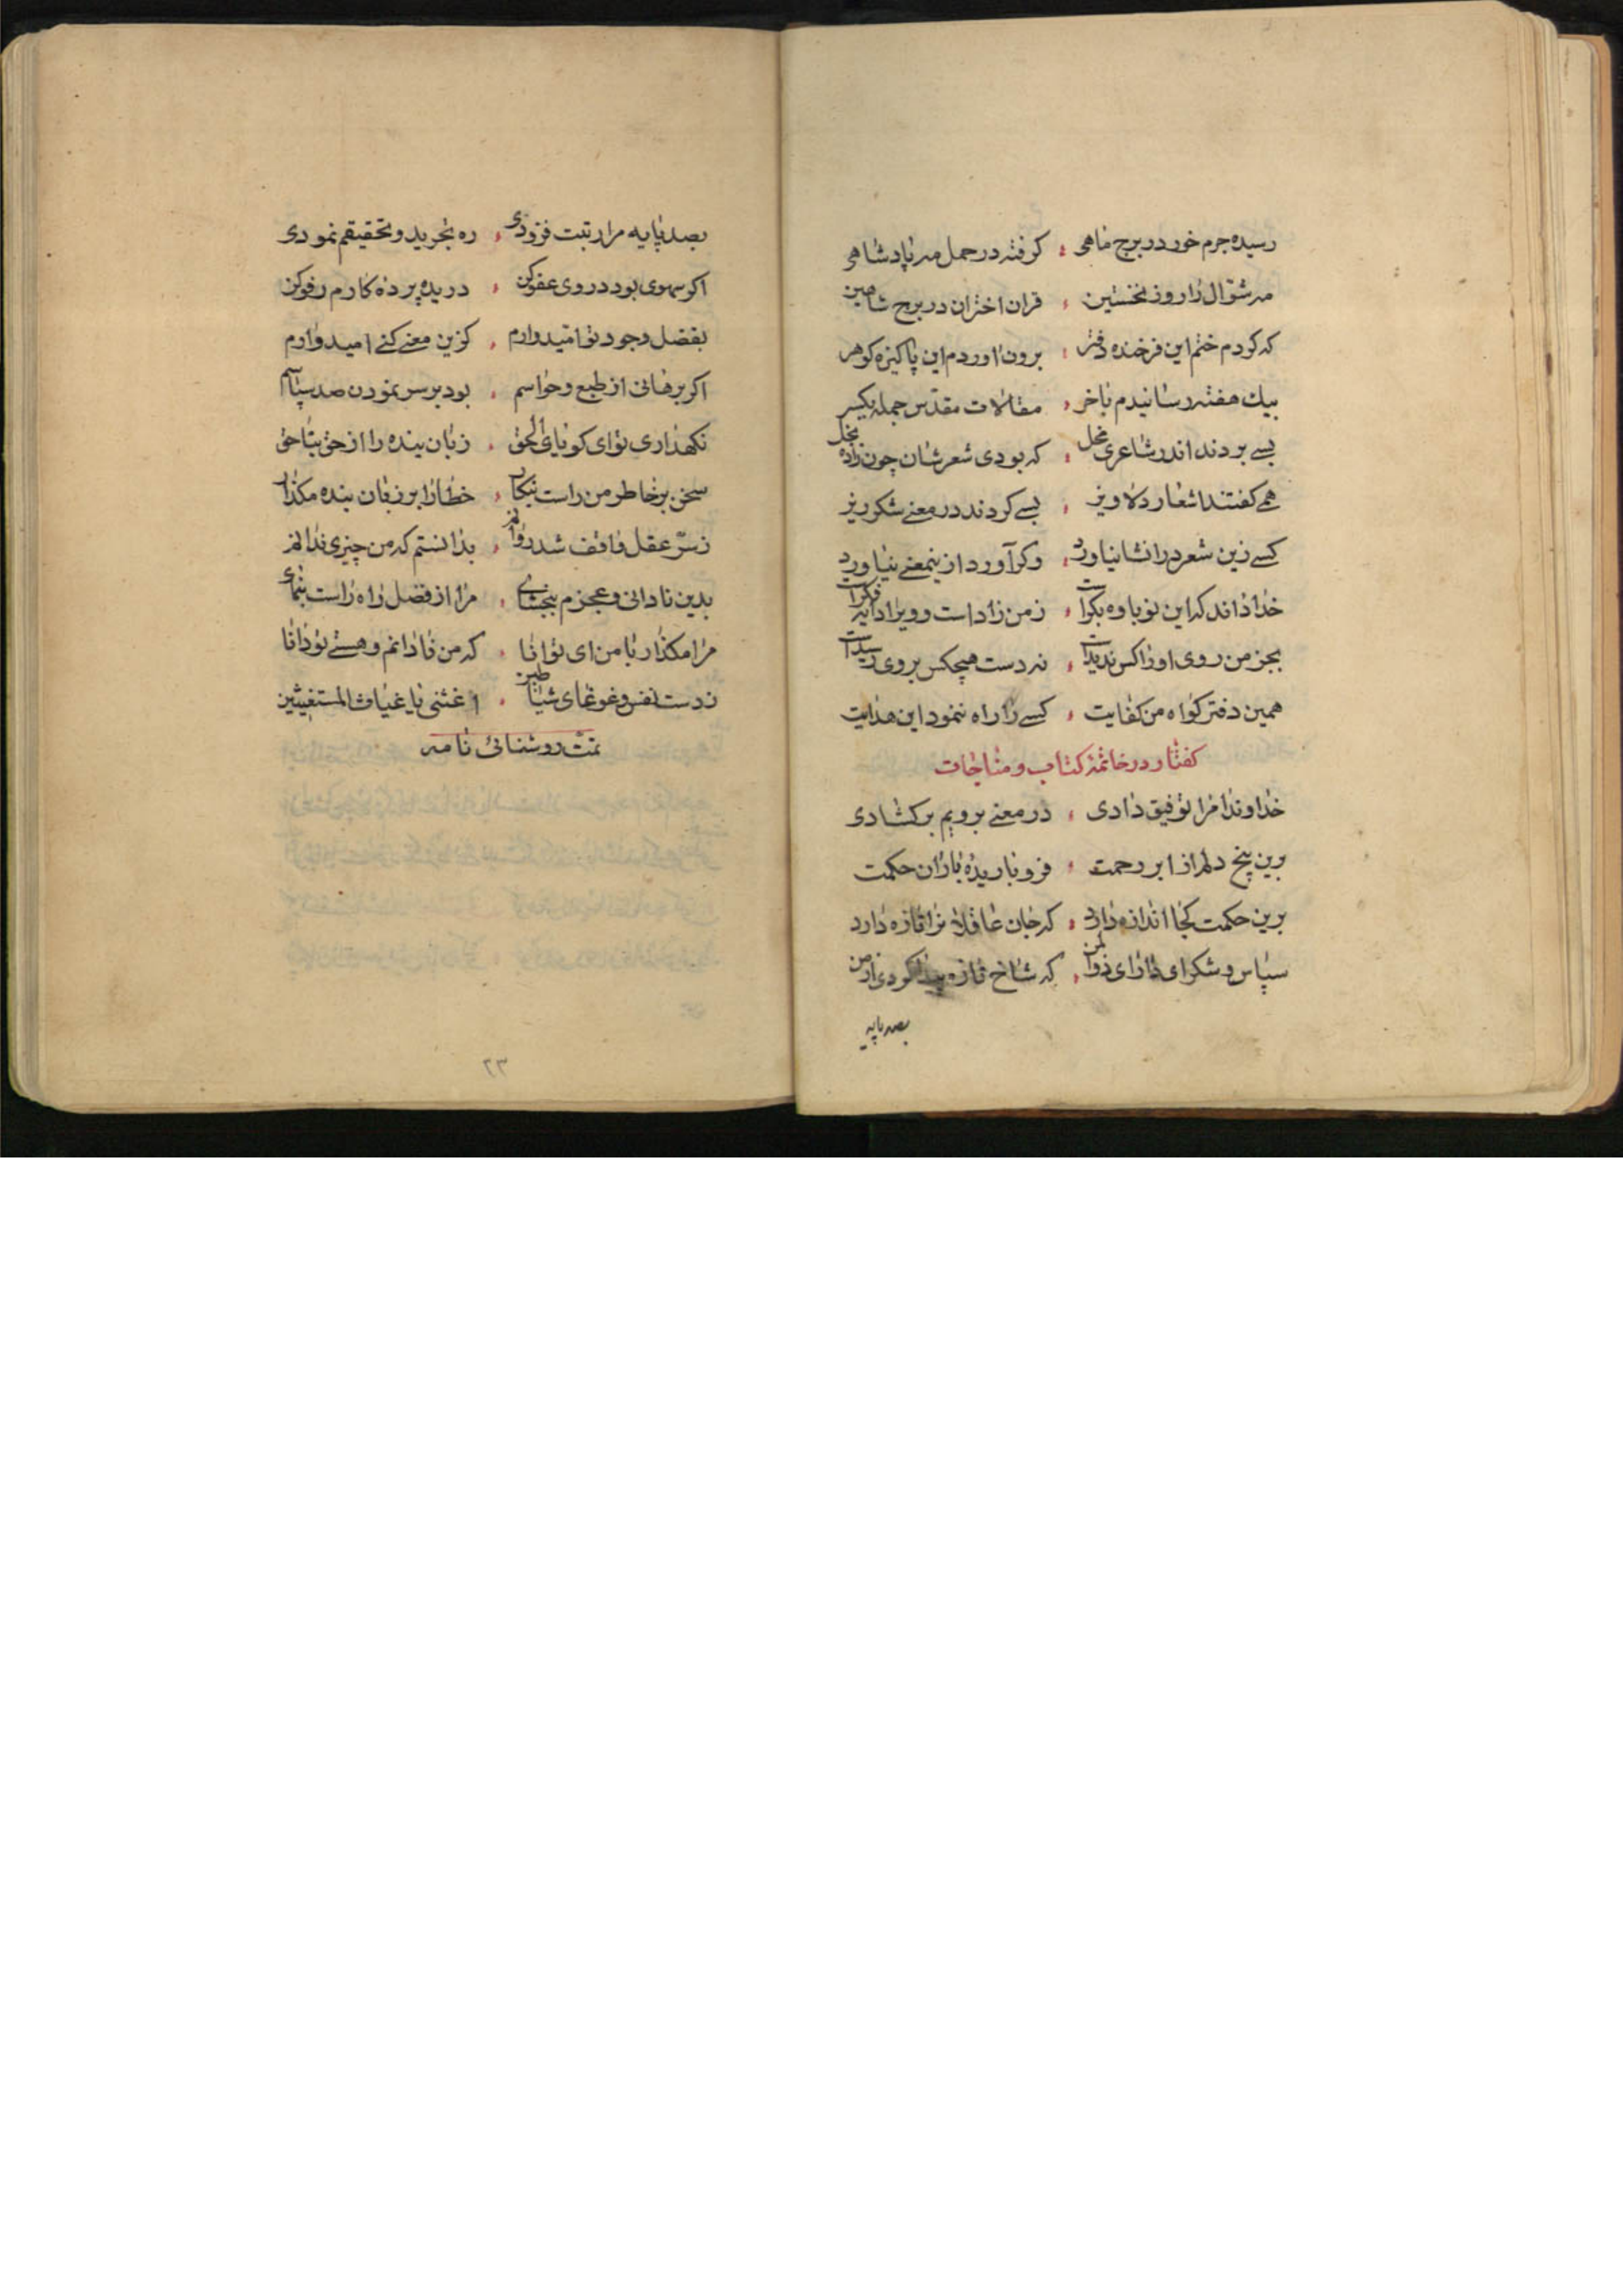 رسیده جرم خور در برج ماهی ؛ کرفته در حمل مه پادشاهی
مه شوّال را روز نخستین ؛ قران اختران در برج شاهین
که کردم ختم این فرخنده دفتر ؛ برون اوردم این پاکیزه کوهر
بیك هفته رسانیدم باخر ؛ مقالات مقدّس جمله یکسر
بسے بردند اندر شاعری نحل ؛ که بودی شعرشان چون زاده نحل
همے کفتند اشعار دلاویز ؛ بسے کردند در معنے شکر ریز
کسے زین شعر در انشا نیاورد ؛ وکر آورد ازینمعنے نیاورد
خدا داند که این نوباوه بکرست ؛ زمن زاداست وویرا دایه فکرست
بجز من روی او را کس ندیداست ؛ نه دست هیچکس بروی رسیداست
همین دفتر کواه من کفایت ؛ کسے را راه ننمود این هدایت
کفتار در خاتمهٔ کتاب و مناجات
خداوندا مرا توفیق دادی ؛ در معنے برویم برکشادی
برین پنج دلم از ابر رحمت ؛ فرو باریده باران حکمت
برین حکمت کجا اندازه دارد ؛ که جان عاقلان را تازه دارد
سپاس و شکر ای دارای ذوالمن ؛ که شاخ تازه پیدا کردی از من
بصد پایه
بصد پایه مرا رتبت فزودی ؛ ره تجرید و تحقیقم نمودی
اکر سهوی بود در وی عفو کن ؛ دریده پرده کارم رفو کن
بفضل وجود تو امّیدوارم ؛ کزین معنے کنے امیدوارم
اکر برهانی از طبع و حواسم ؛ بود بر سر نمودن صد سپاسم
نکهداری توای کویای الحق ؛ زبان بنده را از حق بناحق
سخن بر خاطر من راست بنکار ؛ خطا را بر زبان بنده مکذار
زسرّ عقل واقف شد روانم ؛ بدانستم که من چیزی ندانم
بدین نادانی وعجزم ببخشاے ؛ مرا از فضل راه راست بنمای
مرا مکذار با من ای توانا ؛ که من نادانم و هستے تو دانا
زدست نفس و غوغای شیاطین ؛ اغثنی یا غیاث المستغیثین
تمّت روشنائی نامه
٢٣